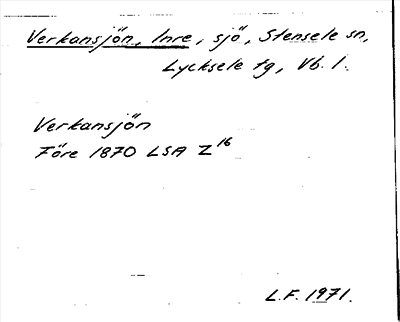 Verkansjön, Inre, sjö, Stensele sn,
Lycksele tg, Vb. l.
Verkansjön
Före 1870 LSA Z16
L.F. 1971.